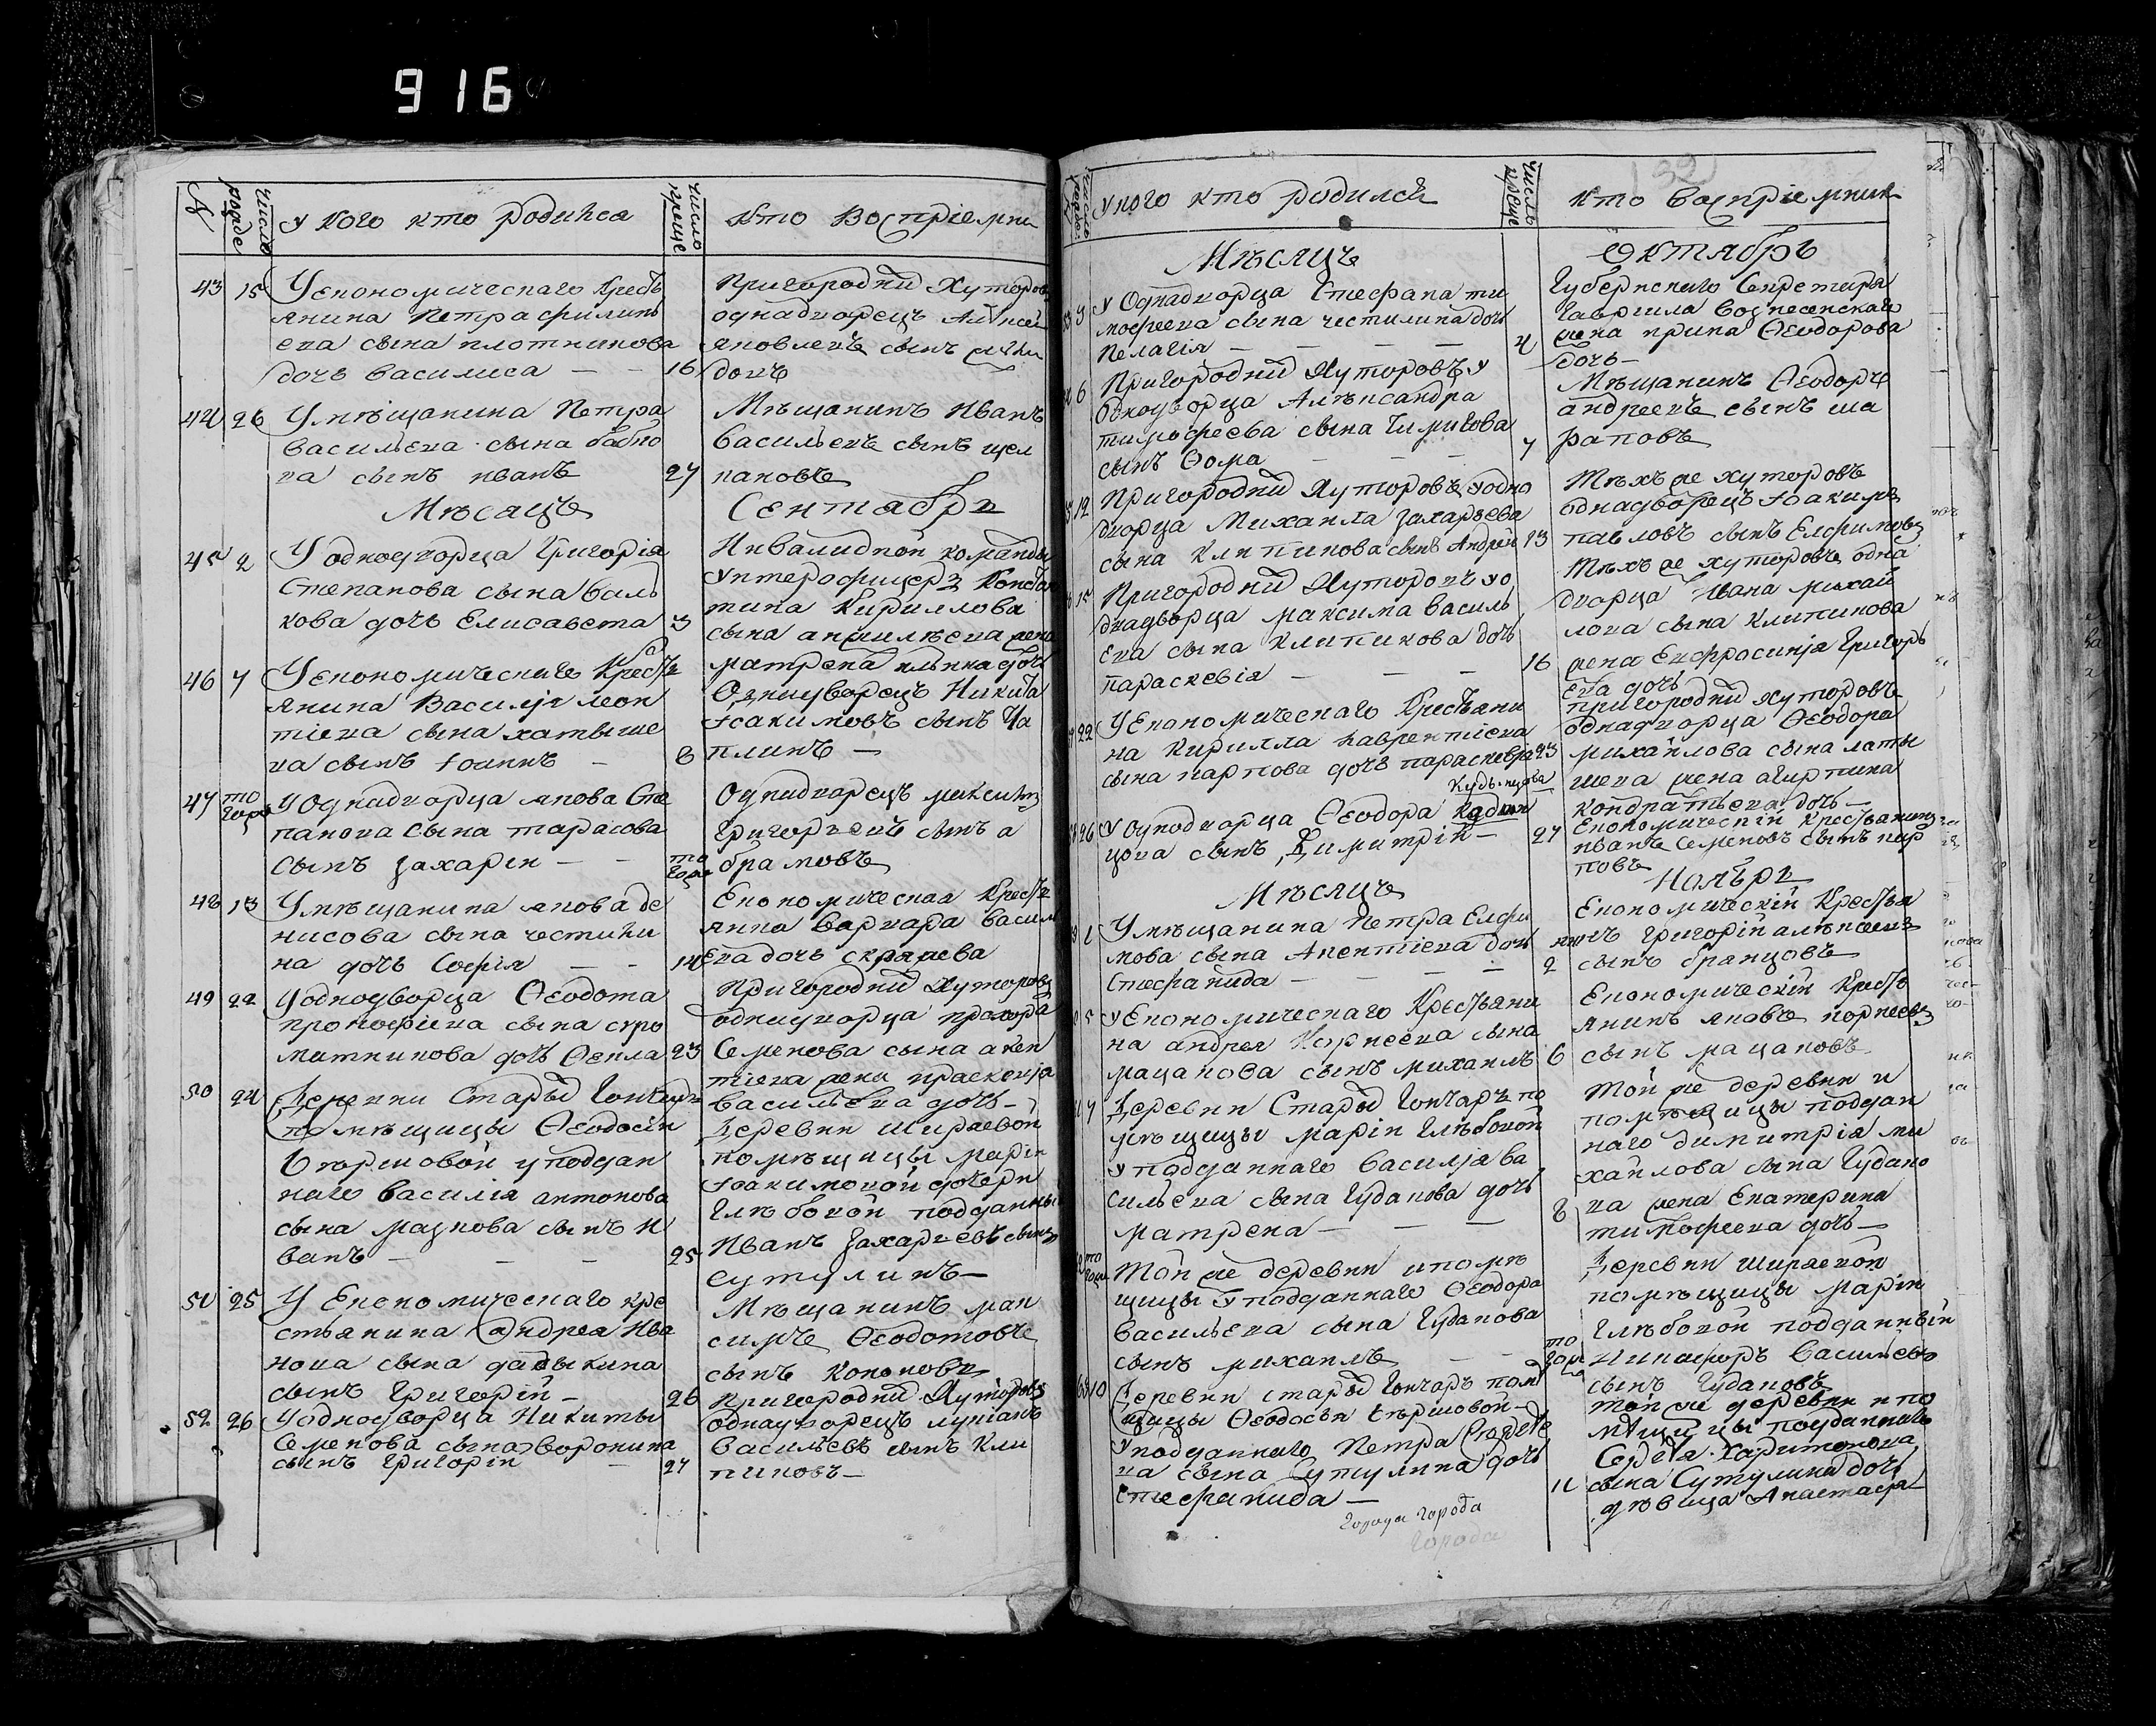 916
№
число родде
У кого кто родился
число креще
Кто Восприемни
43 15 У економическаго Кресть
янина Петра филипь
ева сына плотникова
дочь Василиса — — 16
Пригородни Хуторов
однадворецъ Алѣксей
яковлевъ сынъ
довъ
44 26 У мѣщанина Петра
Васильева сына бабко
ва сынъ иванъ 27
Мѣщанинъ Иванъ
Васильевъ сынъ щел
кановъ
Мѣсацъ Сентабрь
45 2 У однодворца Григорія
Степанова сына Валь
кова дочь Елисавета 3
Инвалидной команды
Унтерофицеръ Констан
тина Кириллова
сына жена
матрена дочь
46 7 У економическаго Крестъ
янина Василія леон
тіева сына хатыше
ва сынъ Іоаннъ — 8
Однодворецъ Никита
Іоакимовъ сынъ Ча
плинъ —
47 то гожъ У Однадворца якова Сте
панова сына тарасова
сынъ захарій — — то гожъ
Однадворецъ максимъ
Григорьевъ сынъ а
брамовъ
48 13 У мѣщанина якова де
нисова сына честили
на дочь Софія — — 14
Економическая Кресть
янка Варвара Васил
ева дочь скряжева
49 22 У однодворца Ѳеодота
прокофіева сына скро
матникова дочь Ѳекла 23
Пригородни Хуторовъ
однодворца прохора
Семенова сына авкен
тіева жена праскевія
Васильева дочь —
50 24 Деревни Стары Гончаръ
помѣщицы Ѳеодосіи
Ершовой у поддан
наго Василія антонова
сына мазнова сынъ И
ванъ — — — 25
Деревни Ширяевой
помѣщицы маріи
Іоакимовой дочери
Глѣбовой подданный
Иванъ Захарьевъ сынъ
сутулинъ —
51 25 У Економическаго кре
стьянина Андрея Ива
нова сына дадыкина
сынъ Григорій — 26
Мѣщанинъ мак
симъ Ѳеодотовъ
сынъ Кононовъ
52 26 У однодворца Никиты
Семенова сына воронина
сынъ Григорій — 27
Пригородни Хуторовъ
однадворецъ лукіанъ
Васильевъ сынъ Кли
пиковъ —
число рожде
У кого кто родился
число креще
кто воспріемник
Мѣсяцъ Октябрь
3 У Однадворца Стефана ти
мофеева сына честилина дочь
Пелагія — — — — 4
Губернскаго Секретаря
Гавриила Вознесенскаго
жена ирина Ѳеодорова
дочь —
6 Пригородни Хуторовъ у
однодворца Алѣксандра
тимофеева сына Чимигова
сынъ Ѳома — — — 7
Мѣщанинъ Ѳеодоръ
андреевъ сынъ ша
раповъ
12 Пригородни Хуторовъ у одно
дворца Михаила захарьева
сына Клипикова сынъ Андрей 13
Тѣхъ же хуторовъ
однадворецъ Іоакимъ
павловъ сынъ Елфимовъ
15 Пригородни Хуторовъ уо
днадворца максима Василь
ева сына клипикова дочь
параскевія — — — 16
Тѣхъ же хуторовъ одна
дворца Ивана михай
лова сына Клипикова
жена Евфросинія Григорь
ева дочь
22 У Економическаго Крестьяни
на Кирилла лаврентіева
сына карпова дочь параскева 23
пригородни хуторовъ
однадворца Ѳеодора
михайлова сына латы
шева жена агирпина
кондратьева дочь —
Кудьянцова
26 У однодворца Ѳеодора Кадын
цова сынъ Димитрій — 27
Економическій Крестьянинъ
иванъ Семеновъ сынъ кар
повъ
Мѣсяцъ Ноябрь
1 У мѣщанина Петра Елфи
мова сына Авкентіева дочь
Стефанида — — — — 2
Економическій Крестья
нинъ григорій алѣксеевъ
сынъ бранцовъ
5 У Економическаго Крестьяни
на андрея Корнеева сына
мацанова сынъ михаилъ 6
Економическій Кресть
янинъ яковъ корнеевъ
сынъ мацановъ
7 Деревни Стары Гончаръ по
мѣщицы маріи Глѣбовой
у подданнаго Василія ва
сильева сына Гуданова дочь
матрена — — — 8
Той же деревни и
помѣщицы поддан
наго димитрія ми
хайлова сына Гудано
ва жена Екатерина
тимофеева дочь —
то гожъ Той же деревни и помѣ
щицы у подданнаго Ѳеодора
Васильева сына Гуданова
сынъ михаилъ — — то гожъ
Деревни Ширяевой
помѣщицы маріи
Глѣбовой подданный
Никифоръ Васильевъ
сынъ Гудановъ
10 Деревни стары Гончаръ помѣ
щицы Ѳеодосьи Ершовой —
у подданнаго Петра
ва сына Сутулина дочь
Стефанида — 11
той же деревни и по
мѣщицы подданнаго
Сергѣя Харитонова
сына Сутулина дочь
дѣвица Анастасія
города города
города